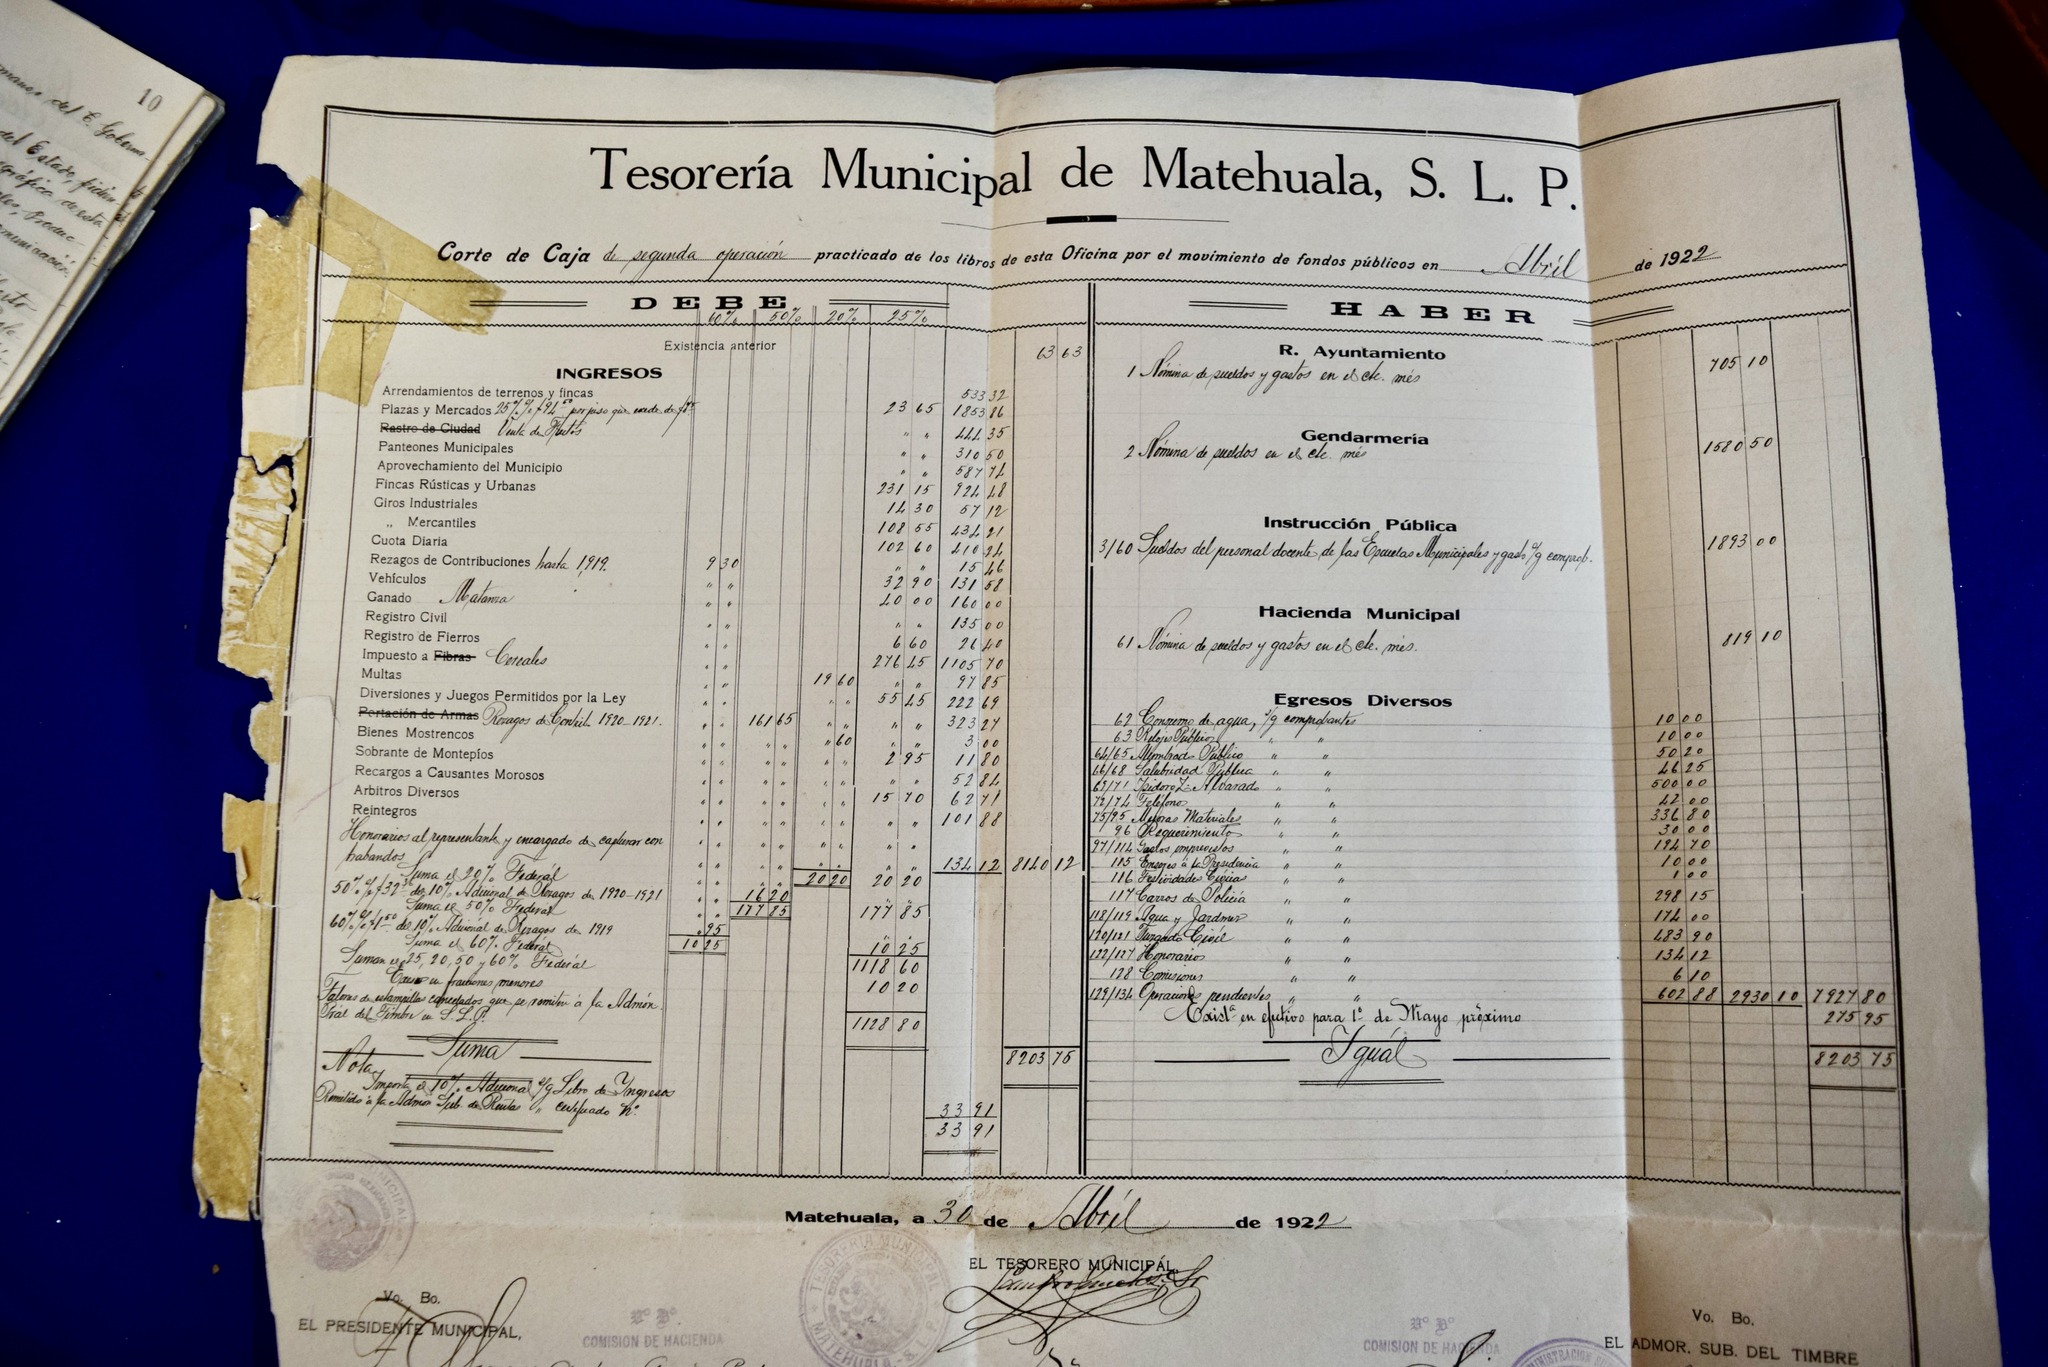 10
del E. Gobierna-
del Estado, fidien
Tesorería Municipal de Matehuala, S. L. P.
Corte de Caja de segunda operación practicado de los libros de esta Oficina por el movimiento de fondos públicos en Abril de 1922
DEBE
60% 50% 20% 25%
Existencia anterior 63 63
INGRESOS
Arrendamientos de terrenos y fincas 533 32
Plazas y Mercados 25% 23 65 1853 86
Rastro de Ciudad Venta de " " 444 35
Panteones Municipales " " 310 50
Aprovechamiento del Municipio " " 587 74
Fincas Rústicas y Urbanas 231 15 924 48
Giros Industriales 14 30 57 12
" Mercantiles 108 55 434 21
Cuota Diaria 102 60 410 24
Rezagos de Contribuciones hasta 1919. 9 30 " " 15 46
Vehículos " " 32 90 131 58
Ganado Matanza " " 40 00 160 00
Registro Civil " " " " 135 00
Registro de Fierros " " 6 60 26 40
Impuesto a Fibras Cereales " " 276 45 1105 70
Multas " " 19 60 " " 97 85
Diversiones y Juegos Permitidos por la Ley " " 55 45 222 69
Portación de Armas Rezagos de Contrib. 1920-1921. " " 161 65 " " " " 323 27
Bienes Mostrencos " " " " " 60 " " 3 00
Sobrante de Montepíos " " " " " " 2 95 11 80
Recargos a Causantes Morosos " " " " " " " " 52 84
Arbitros Diversos " " " " " " 15 70 62 71
Reintegros " " " " " " " " 101 88
Honorarios al representante y encargado de capturar con
trabandos 134 12 8140 12
Suma el 20% Federal 20 20 20 20
50% de 10% Adicional de Rezagos de 1920-1921 16 20
Suma el 50% Federal 177 85 177 85
60% de 10% Adicional de Rezagos de 1919 .95
Suma el 60% Federal 10 25 10 25
Suman el 25, 20, 50 y 60% Federal 1118 60
Exceso en fracciones menores 10 20
Valores de estampillas canceladas que se remiten á la Admón.
Pral del Timbre en S. L. P. 1128 80
Suma 8203 75
Nota
Importa el 10% Adicional s/g Libro de Ingresos 33 91
Remitido á la Admón Sub. de Rentas " certificado No. 33 91
HABER
R. Ayuntamiento
1 Nómina de sueldos y gastos en el cte. més 705 10
Gendarmería
2 Nómina de sueldos en el cte. més 1580 50
Instrucción Pública
3/60 Sueldos del personal docente de las Escuelas Municipales y gasto s/g comprob. 1893 00
Hacienda Municipal
61 Nómina de sueldos y gastos en el cte. més. 819 10
Egresos Diversos
62 Consumo de agua, s/g comprobantes 10 00
63 Relojes Público " " 10 00
64/65 Alumbrado Público " " 50 20
66/68 Salubridad Pública " " 46 25
69/71 Isidoro Z. Alvarado " " 500 00
72/74 Teléfonos " " 42 00
75/95 Mejoras Materiales " " 336 80
96 Requerimiento " " 30 00
97/114 Gastos imprevistos " " 194 70
115 Enseres á la Presidencia " " 10 00
116 Festividades Cívicas " " 1 00
117 Carros de Policía " " 298 15
118/119 Agua y Jardines " " 174 00
120/121 Juzgado Civil " " 483 90
122/127 Honorarios " " 134 12
128 Comisiones " " 6 10
129/134 Operaciones pendientes " " 602 88 2930 10 7927 80
Exista en efectivo para 1o. de Mayo próximo 275 95
Igual 8203 75
Matehuala, a 30 de Abril de 1922
EL TESORERO MUNICIPAL,
TESORERIA MUNICIPAL
MATEHUALA-S. L. P.
Vo. Bo.
EL PRESIDENTE MUNICIPAL,
Vo Bo
COMISION DE HACIENDA
Vo Bo
COMISION DE HACIENDA
Vo. Bo.
EL ADMOR. SUB. DEL TIMBRE